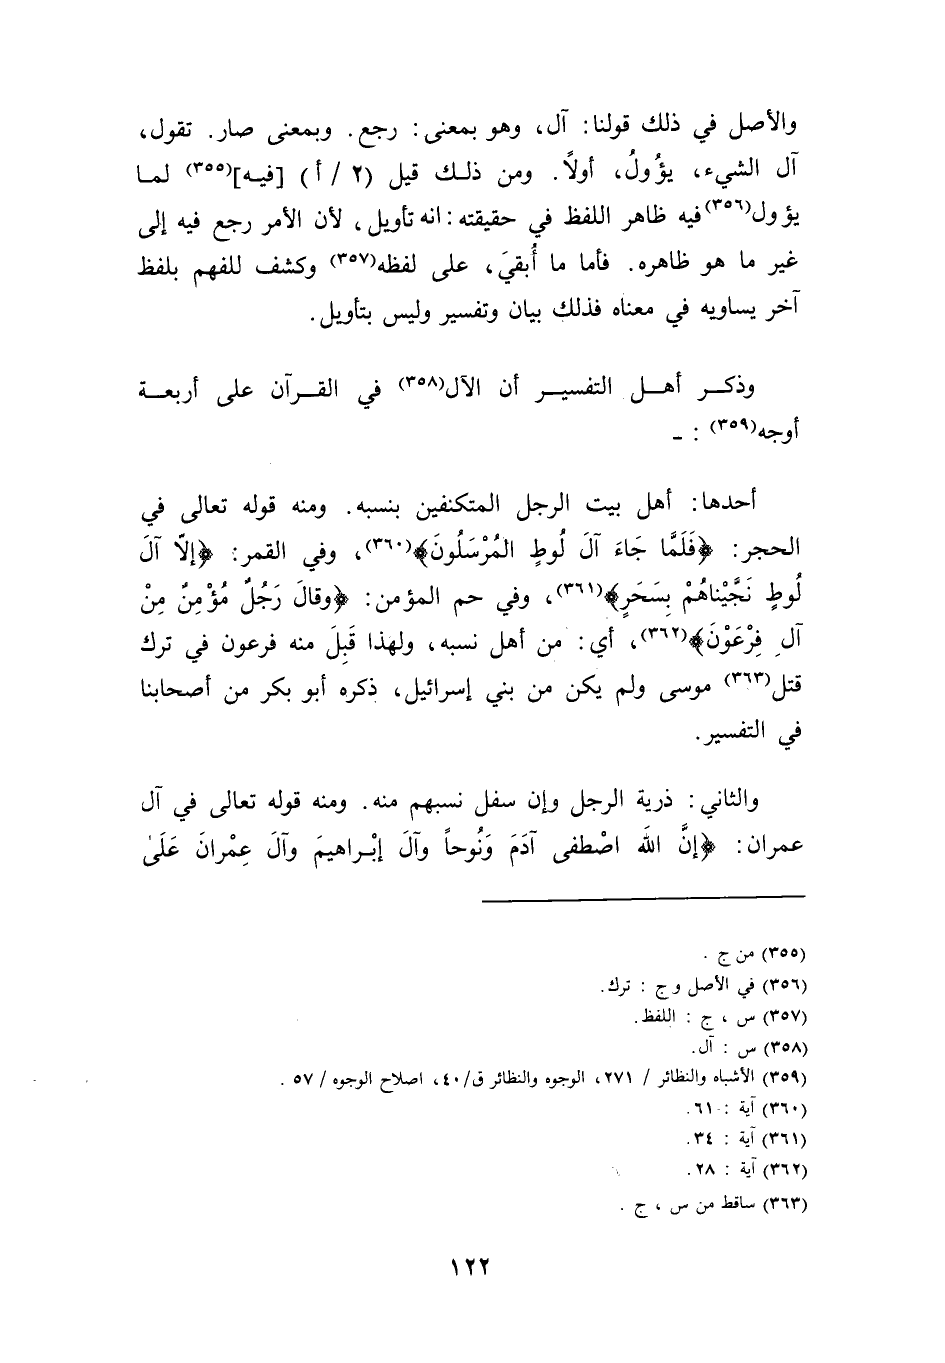 والأصل في ذلك قولنا: آل، وهو بمعنى: رجع. وبمعنى صار. تقول،
آل الشيء، يؤُولُ، أولاً. ومن ذلك قيل (٢ / أ) [فيه](٣٥٥) لما
يؤول(٣٥٦)فيه ظاهر اللفظ في حقيقته: انه تأويل، لأن الأمر رجع فيه إلى
غير ما هو ظاهره. فأما ما أُبقيَ، على لفظه(٣٥٧) وكشف للفهم بلفظ
آخر يساويه في معناه فذلك بيان وتفسير وليس بتأويل.
وذكر أهل التفسير أن الآل(٣٥٨) في القرآن على أربعة
أوجه(٣٥٩) : ـ
أحدها: أهل بيت الرجل المتكنفين بنسبه. ومنه قوله تعالى في
الحجر: ﴿فَلَمَّا جَاءَ آلَ لُوطٍ المُرْسَلُونَ﴾(٣٦٠)، وفي القمر: ﴿إلاّ آلَ
لُوطٍ نَجَّيْناهُمْ بِسَحَرٍ﴾(٣٦١)، وفي حم المؤمن: ﴿وقالَ رَجُلٌ مُؤْمِنٌ مِنْ
آلِ فِرْعَوْنَ﴾(٣٦٢)، أي: من أهل نسبه، ولهذا قَبِلَ منه فرعون في ترك
قتل(٣٦٣) موسى ولم يكن من بني إسرائيل، ذكره أبو بكر من أصحابنا
في التفسير.
والثاني: ذرية الرجل وإن سفل نسبهم منه. ومنه قوله تعالى في آل
عمران: ﴿إنَّ اللَّهَ اصْطفى آدَمَ وَنُوحاً وآلَ إبْراهيمَ وآلَ عِمْرانَ عَلَىٰ
(٣٥٥) من ج .
(٣٥٦) في الأصل و ج : ترك.
(٣٥٧) س ، ج : اللفظ.
(٣٥٨) س : آل.
(٣٥٩) الأشباه والنظائر / ٢٧١، الوجوه والنظائر ق/٤٠، اصلاح الوجوه / ٥٧ .
(٣٦٠) آية : ٦١.
(٣٦١) آية : ٣٤.
(٣٦٢) آية : ٢٨.
(٣٦٣) ساقط من س ، ج .
١٢٢